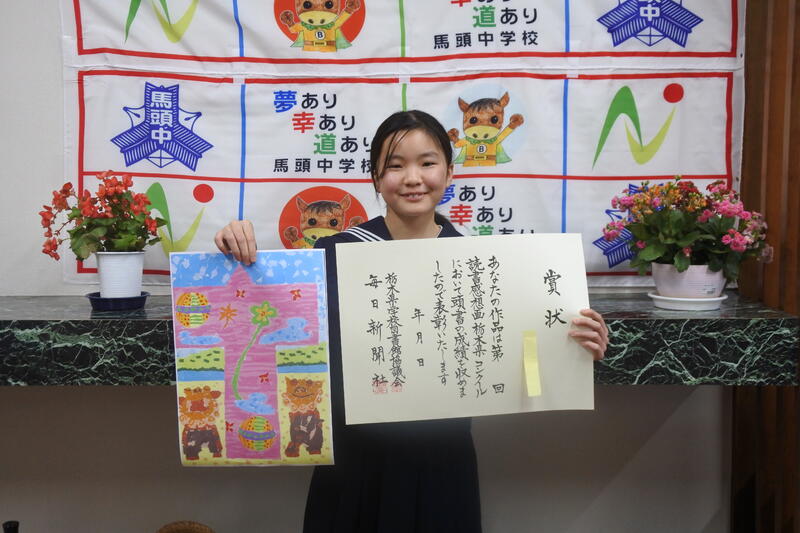 幸あり
道あり
馬頭中学校
中
馬頭中
夢あり
幸あり
道あり
馬頭中学校
B
B
夢あり
幸あり
道あり
賞状
あなたの作品は第 回
読書感想画栃木県コンクール
において頭書の成績を収めま
したので表彰いたします
年 月 日
栃木県学校図書館協議会
毎日新聞社